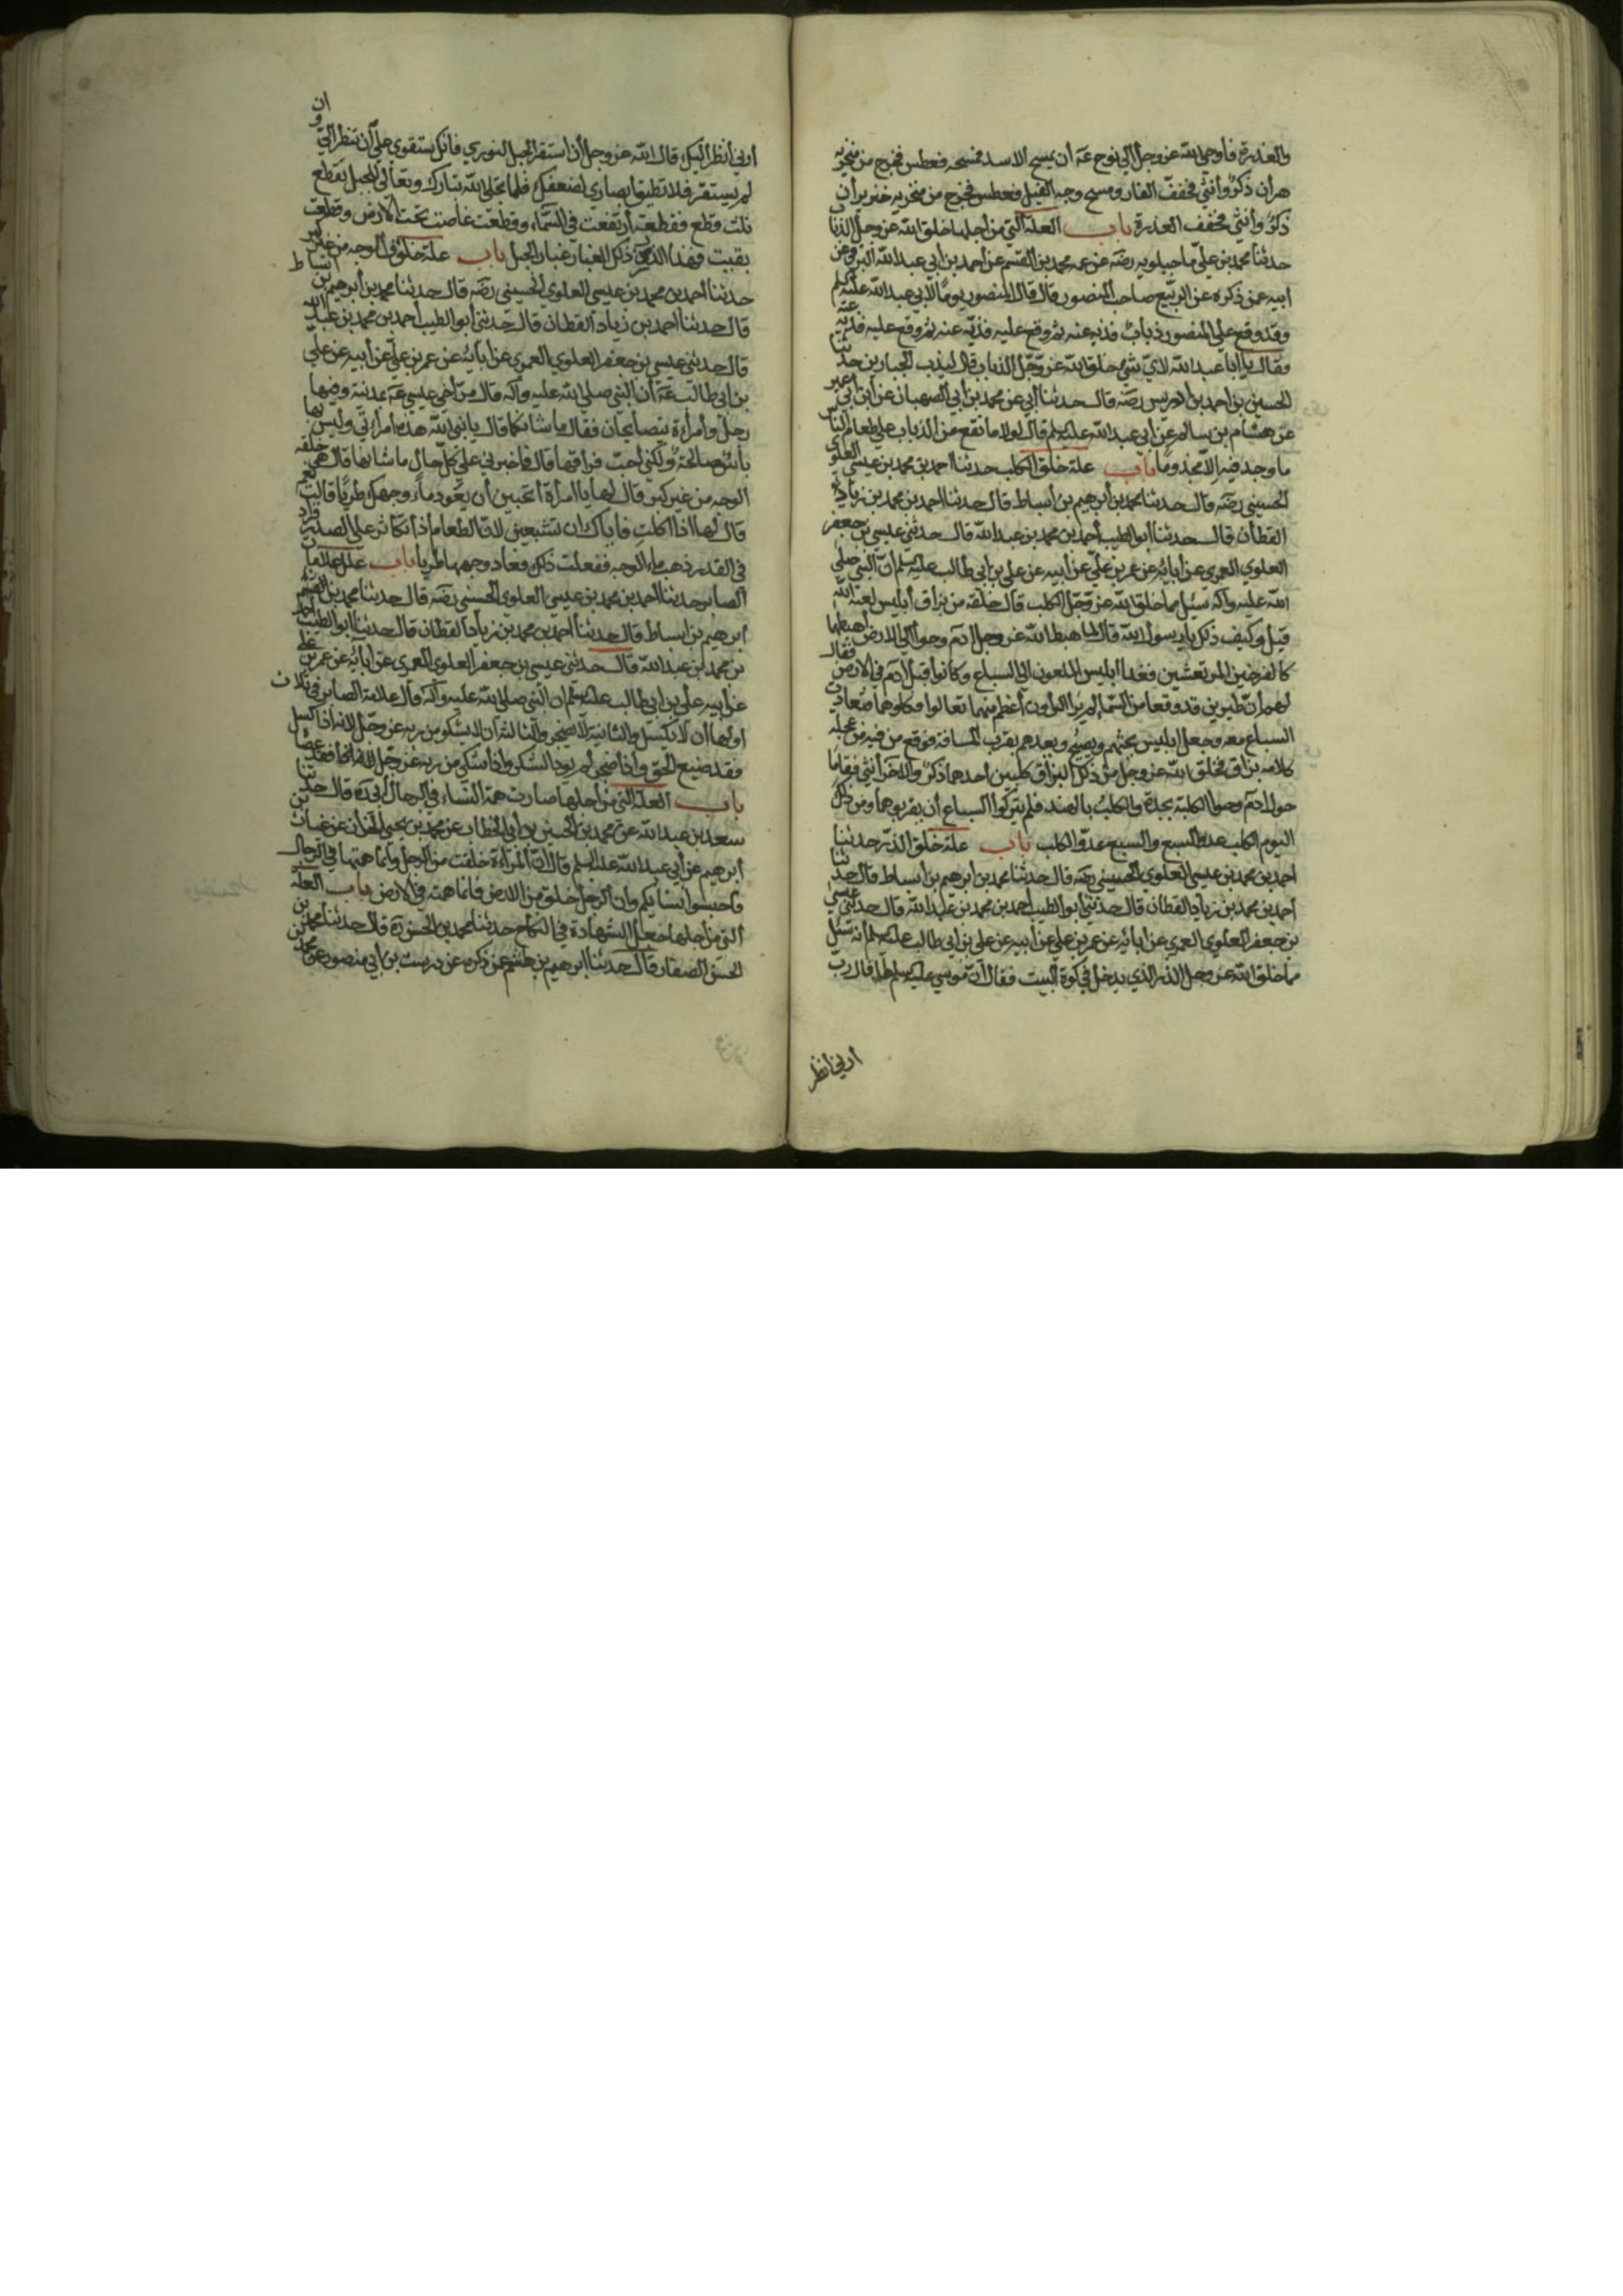 والعذرة فاوحى الله عزوجل الى نوح عَه أن يمسح الاسد فمسحه فعطس فخرج من منخريه
هران ذكرٌ وأنثى فخفف الفار ومسح وجه الفيل فعطس فخرج من منخريه خنزيران
ذكرٌ وأنثى فخفف العذرة باب العلة التي من أجلها خلق الله عزوجل الذباب
حدثنا محمد بن علي ماجيلويه رضه عن عمه محمد بن القسم عن أحمد بن أبي عبد الله البرقي عن
ابيه عمن ذكره عن الربيع صاحب المنصور قال قال المنصور يومًا لابي عبد الله عليه السلم
وقد وقع على المنصور ذبابٌ فذبه عنه ثم وقع عليه فذبه عنه ثم وقع عليه فذبه عنه
فقال يا أبا عبد الله لأي شئ خلق الله عزوجل الذباب قال ليذب الجبارين حدثنا
الحسين بن احمد بن ادريس رضه قال حدثنا أبي عن محمد بن أبي الصهبان عن ابن أبي عمير
عن هشام بن سالم عن أبي عبد الله عليه السلم قال لولا ما نقع من الذباب على طعام الناس
ما وجد فيهم إلا مجذومًا باب علة خلق الكلب حدثنا احمد بن محمد بن عيسى العلوي
الحسيني رضه قال حدثنا محمد بن أبرهيم بن أسباط قال حدثنا احمد بن محمد بن زياد
القطان قال حدثنا أبو الطيب أحمد بن محمد بن عبد الله قال حدثني عيسى بن جعفر
العلوي العمري عن أبائه عن عمر بن علي عن أبيه عن علي بن أبي طالب عليه السلم ان النبي صلى
الله عليه وآله سئل مما خلق الله عزوجل الكلب قال خلقه من بزاق أبليس لعنه الله
قيل وكيف ذلك يا رسول الله قال لما اهبط الله عزوجل آدم وحوا الى الارض اهبطهما
كالفرخين المرتعشين فغدا ابليس الملعون الى السباع وكانوا قبل آدم في الارض فقال
لهم أن طيرين قد وقعا من السما لم ير الراون أعظم منهما تعالوا فكلوهما فتعادت
السباع معه وجعل ابليس يحثهم ويصيح ويعدهم بقرب المسافة فوقع من فيه من عجلة
كلامه بزاق فخلق الله عزوجل من ذلك البزاق كلبين احدهما ذكرٌ والاخر أنثى فقاما
حول آدم وحوا الكلبة بجدة والكلب بالهند فلم يتركوا السباع أن يقربوهما ومن ذلك
اليوم الكلب عدو السبع والسبع عدو الكلب باب علة خلق الذر حدثنا
احمد بن محمد بن عيسى العلوي الحسيني رضه قال حدثنا محمد بن أبرهيم بن أسباط قال حدثنا
أحمد بن محمد بن زياد القطان قال حدثني أبو الطيب أحمد بن محمد بن عبد الله قال حدثني عيسى
بن جعفر العلوي العمري عن ابائه عن عمر بن علي عن أبيه عن علي بن أبي طالب عليه السلم أنه سئل
مما خلق الله عزوجل الذر الذي يدخل في كوة البيت فقال أن موسى عليه السلم لما قال رب
أرني أنظر
أرني أنظر اليك قال الله عزوجل أن استقر الجبل لنوري فانك ستقوى على أن تنظر الي وان
لم يستقر فلا تطيق أبصاري لضعفك فلما تجلى الله تبارك وتعالى للجبل تقطع
ثلث قطع فقطعة أرتفعت في السماء وقطعت غاصت تحت الارض وقطعت
بقيت فهذا الذر من ذلك الغبار غبار الجبل باب علة خلق الوجه من غير كبر
حدثنا احمد بن محمد بن عيسى العلوي الحسيني رضه قال حدثنا محمد بن أبرهيم بن اسباط
قال حدثنا أحمد بن زياد القطان قال حدثني أبو الطيب احمد بن محمد بن عبد الله
قال حدثني عيسى بن جعفر العلوي العمري عن أبائه عن عمر بن علي عن أبيه عن علي
بن ابي طالب عَه أن النبي صلى الله عليه وآله قال مر أخي عيسى عَه بمدينة وفيها
رجل وأمرأة يتصايحان فقال ما شانكما قال يا نبي الله هذه أمرأتي وليس بها
بأسٌ صالحة ولكني أحب فراقها قال فاخبرني على كل حال ما شانها قال هي خلقة
الوجه من غير كبر قال لها يا امرأة أتحبين أن يعود ماء وجهك طريا قالت نعم
قال لها اذا اكلت فاياك ان تشبعين لان الطعام أذا تكاثر على الصدر فزاد
في القدر ذهب ماء الوجه ففعلت ذلك فعاد وجهها طريا باب علل علامات
الصابر حدثنا احمد بن محمد بن عيسى العلوي الحسيني رضه قال حدثنا محمد بن
ابرهيم بن اسباط قال حدثنا أحمد بن محمد بن زياد القطان قال حدثنا ابو الطيب أحمد
بن محمد بن عبد الله قال حدثني عيسى بن جعفر العلوي العمري عن ابائه عن عمر بن علي
عن أبيه علي بن ابي طالب عليه السلم ان النبي صلى الله عليه وآله قال علامة الصابر في ثلاث
اولها أن لا يكسل والثانية لا يضجر والثالثة أن لا يشكو من ربه عزوجل لانه أذا كسل
فقد ضيع الحق واذا ضجر لم يود الشكر واذا شكى من ربه عزوجل فقد عصاه
باب العلة التي من اجلها صارت همة النساء في الرجال أبي ره قال حدثنا
سعد بن عبد الله عن محمد بن الحسين بن أبي الخطاب عن محمد بن يحيى الخزاز عن غياث بن
أبرهيم عن أبي عبد الله عليه السلم قال ان المرأة خلقت من الرجل وانما همتها في الرجال
فاحبسوا نساءكم وان الرجل خلق من الارض فانما همته في الارض باب العلة
التي من أجلها جعل الشهادة في النكاح حدثنا محمد بن الحسن ره قال حدثنا محمد بن
الحسن الصفار قال حدثنا ابرهيم بن هاشم عمن ذكره عن درست بن أبي منصور عن محمد